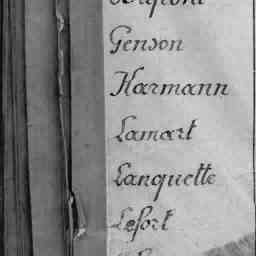 Genson
Karmann
Lamart
Lanquette
Lefort